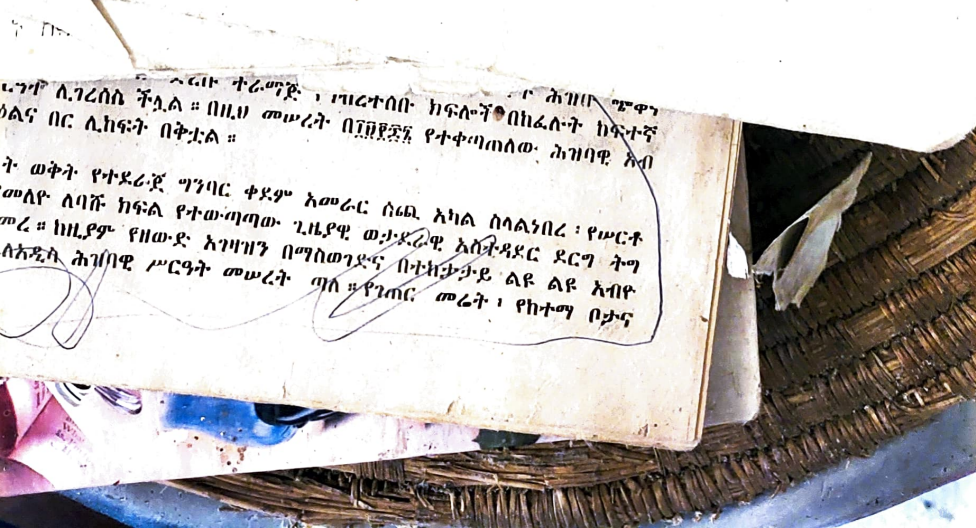 ተራማጅ ፣ ክፍሎች በከፈሉት ከፍተኛ
ሊገረሰስ ችሏል ። በዚህ መሠረት በ፲፱፻፷፯ የተቀጣጠለው ሕዝባዊ አብ
በር ሊከፍት በቅቷል ።
ት ወቅት የተደራጀ ግንባር ቀደም አመራር ሰጪ አካል ስላልነበረ ፡ የሠርቶ
መለዮ ለባሹ ክፍል የተውጣጣው ጊዜያዊ ወታደራዊ አስተዳደር ደርግ ትግ
መረ ። ከዚያም የዘውድ አገዛዝን በማስወገድና በተከታታይ ልዩ ልዩ አብዮ
ለአዲሱ ሕዝባዊ ሥርዓት መሠረት ጣለ ። የገጠር መሬት ፣ የከተማ ቦታና